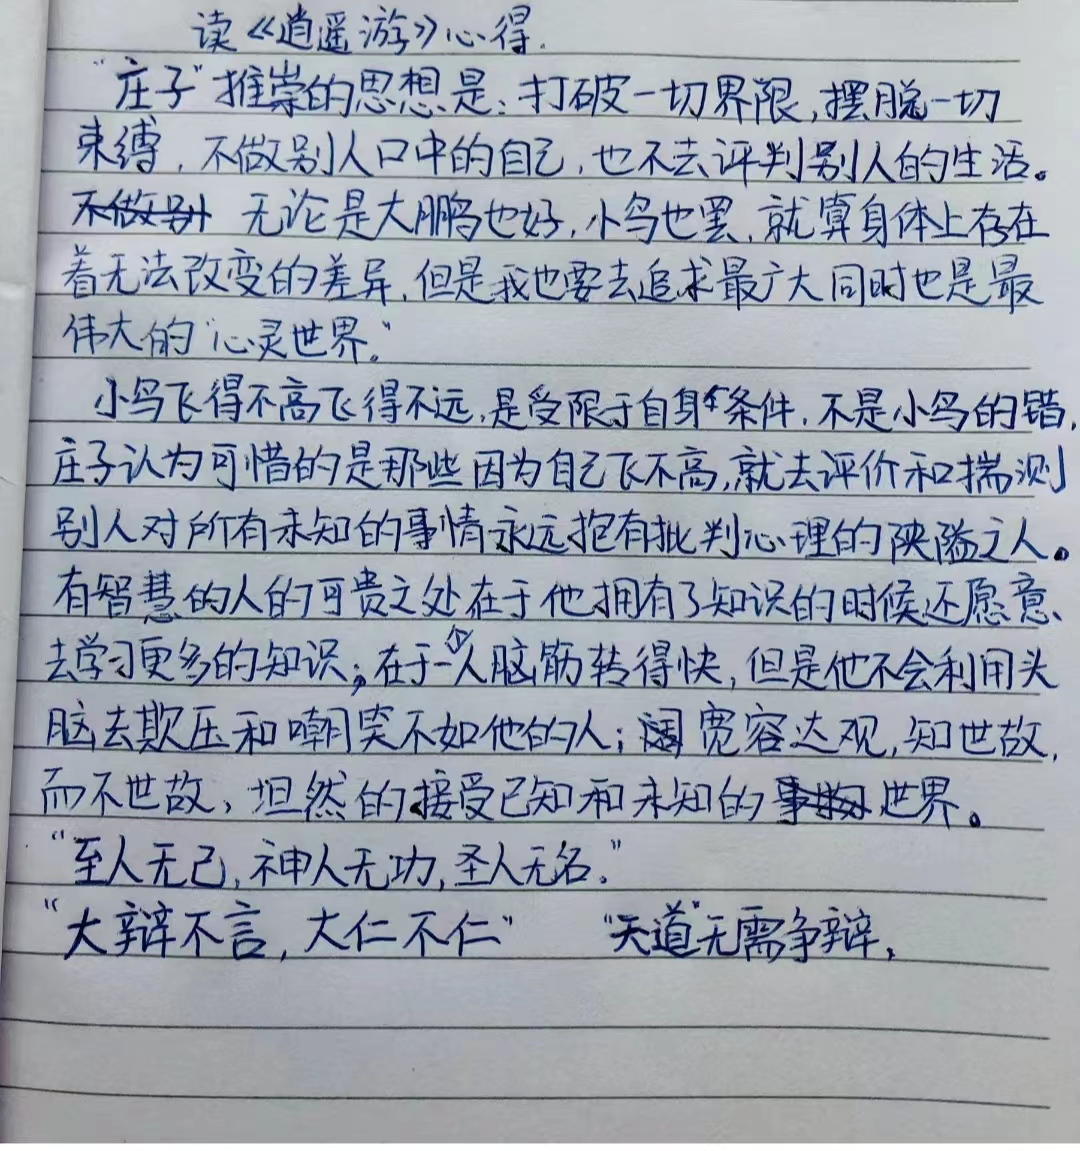 读《逍遥游》心得.
“庄子”推崇的思想是：打破一切界限，摆脱一切
束缚，不做别人口中的自己，也不去评判别人的生活。
不做别 无论是大鹏也好，小鸟也罢，就算身体上存在
着无法改变的差异，但是我也要去追求最广大同时也是最
伟大的“心灵世界。”
小鸟飞得不高飞得不远，是受限于自身条件，不是小鸟的错，
庄子认为可惜的是那些因为自己飞不高，就去评价和揣测
别人对所有未知的事情永远抱有批判心理的狭隘之人。
有智慧的人的可贵之处在于他拥有了知识的时候还愿意
去学习更多的知识；在于一个人脑筋转得快，但是他不会利用头
脑去欺压和嘲笑不如他的人；宽容达观，知世故，
而不世故，坦然的接受已知和未知的事物世界。
“至人无己，神人无功，圣人无名。”
“大辩不言，大仁不仁” “天道”无需争辩，